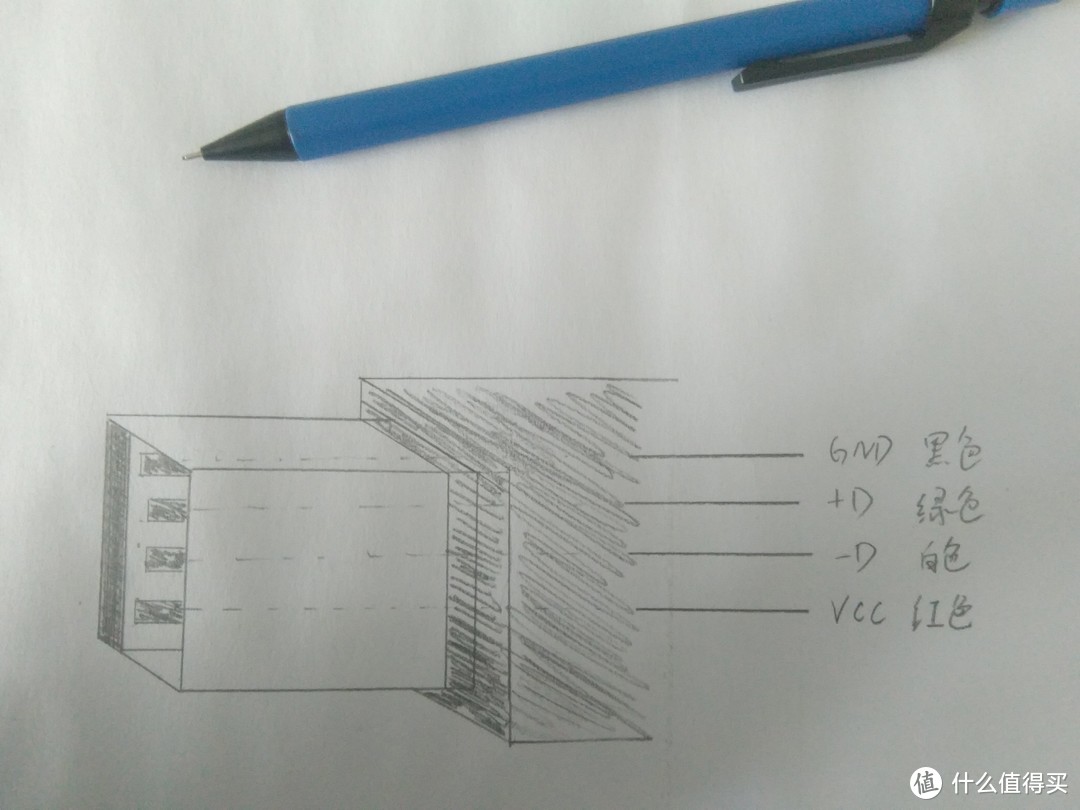 GND 黑色
+D 绿色
-D 白色
VCC 红色
值 什么值得买